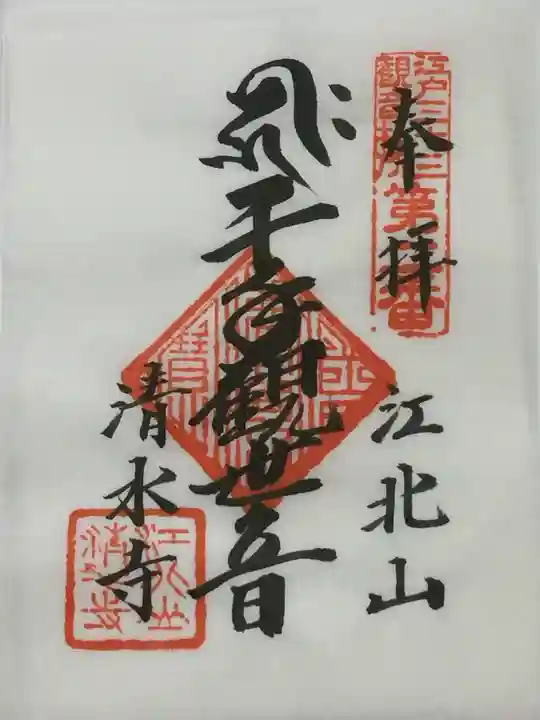 奉拝
江戸三十三
観音札所
第二番
江北山
千手観世音
清水寺